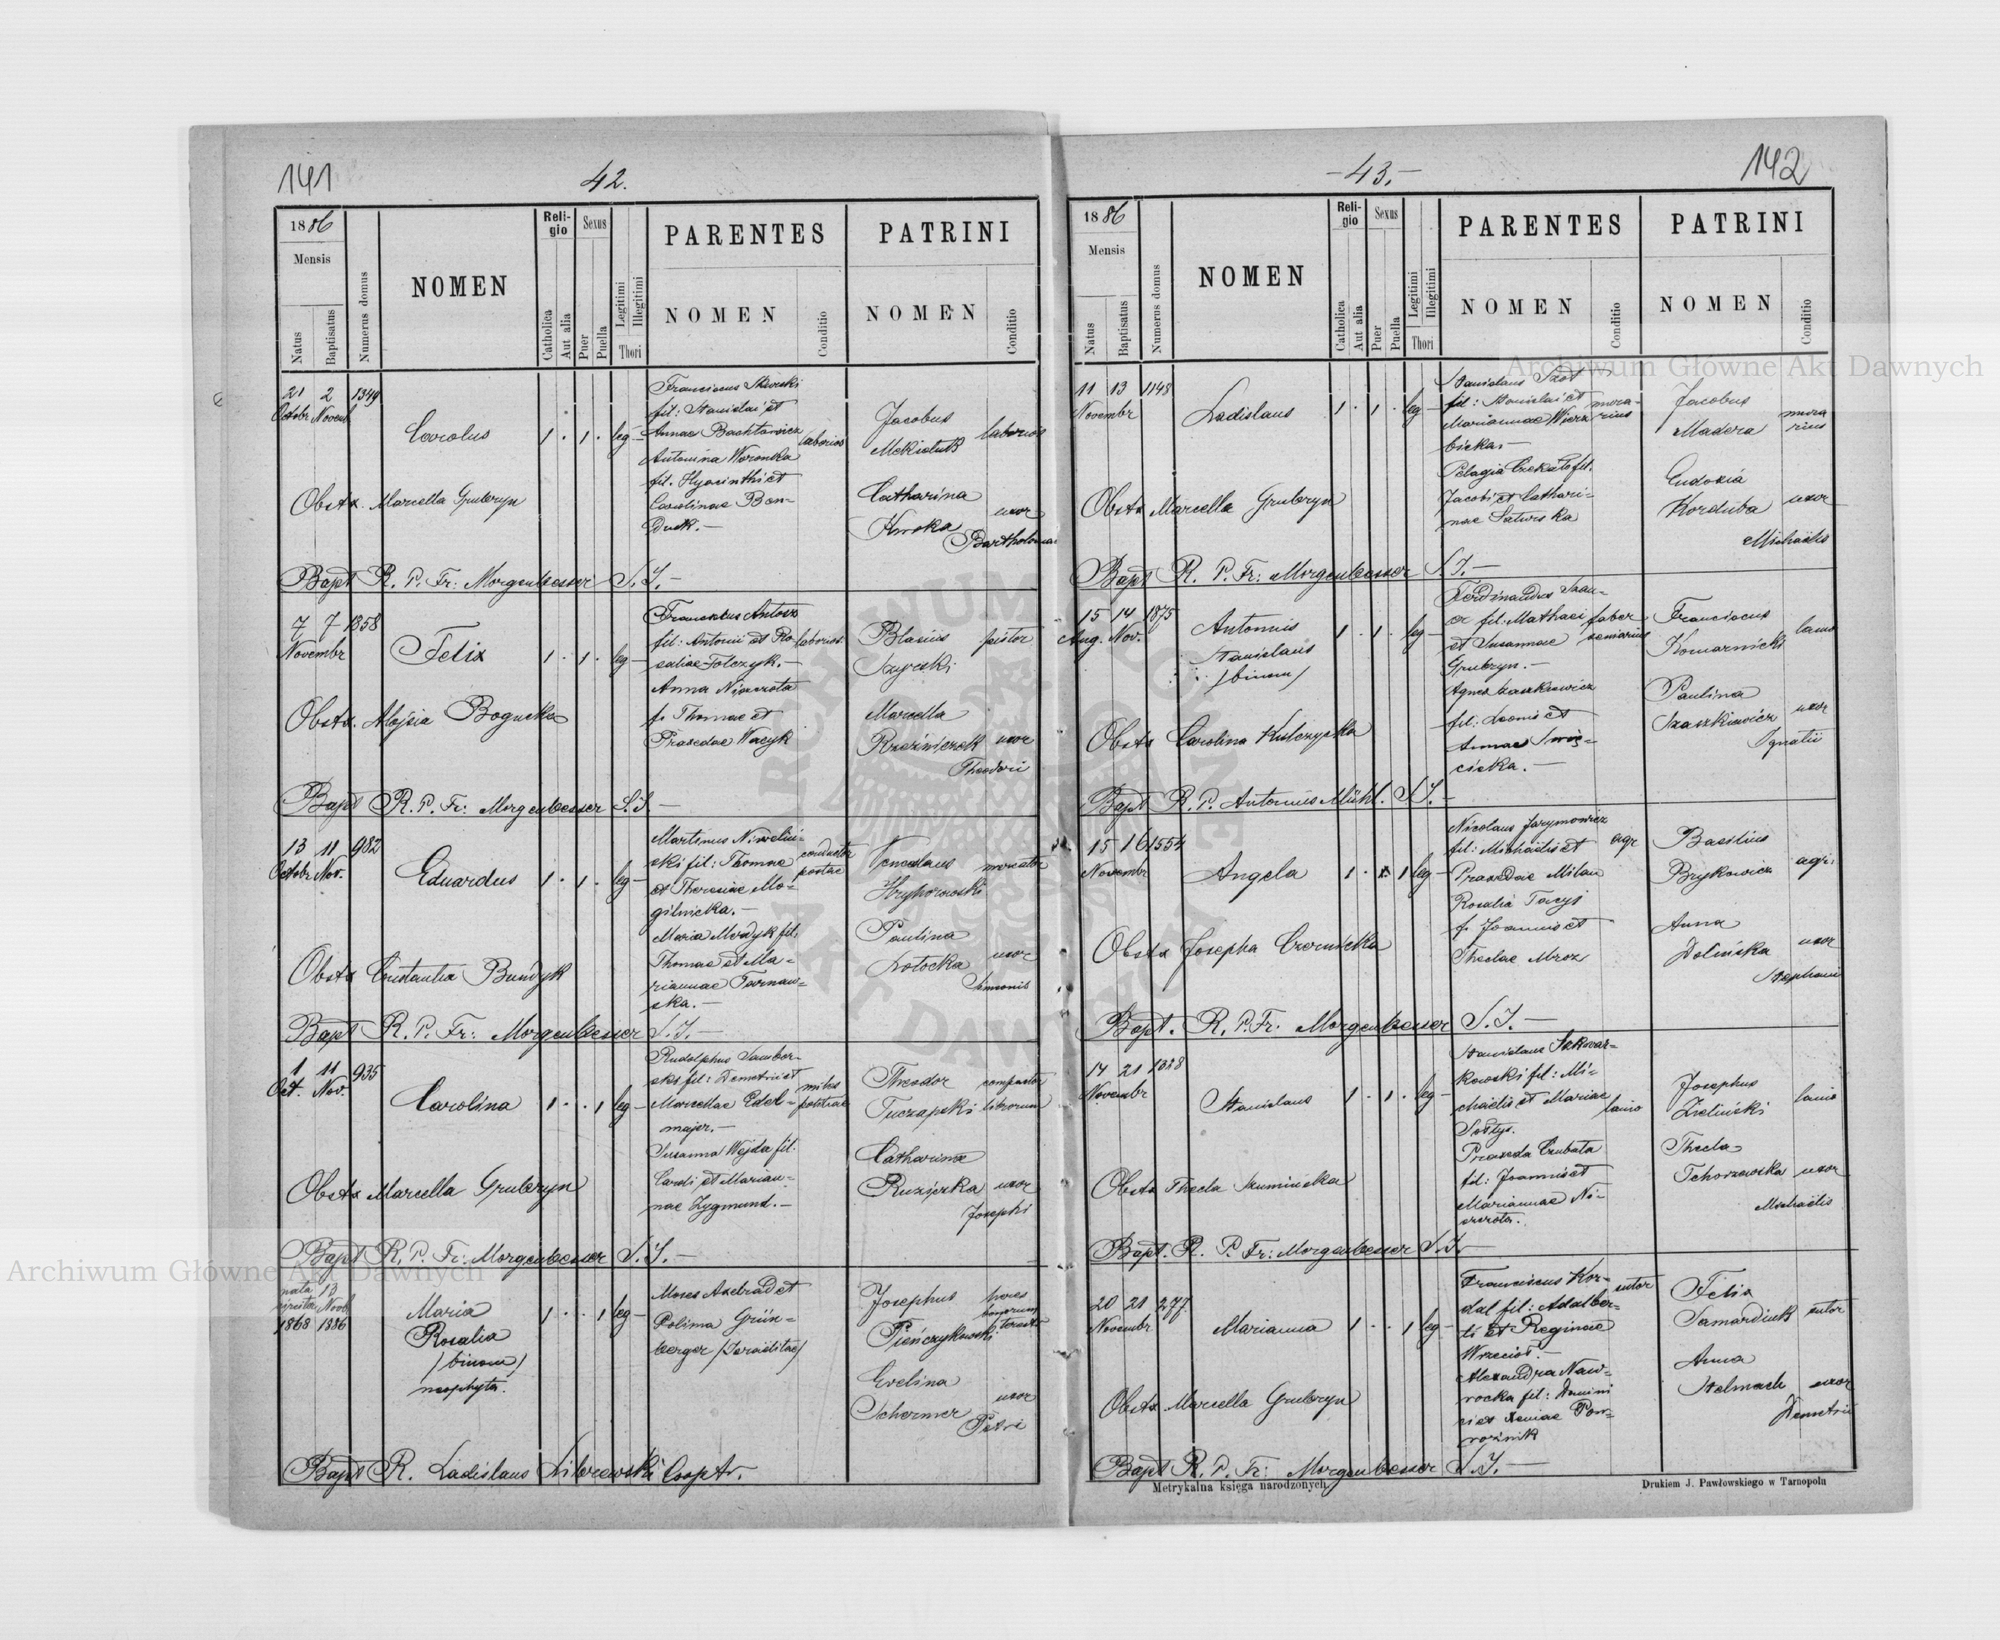 141
42.
1886
Mensis
Natus
Baptisatus
Numerus domus
NOMEN
Reli-
gio
Catholica
Aut alia
Sexus
Puer
Puella
Legitimi
Illegitimi
Thori
PARENTES
NOMEN
Conditio
PATRINI
NOMEN
Conditio
21 2 1349
Octobr Novemb
Carolus
1 . 1 . leg –
Franciscus
fil: Stanislai et
Annae
Antonina Woronka
fil. Hyacinthi et
Carolinae Ben-
duk. –
laborios
Jacobus
laborios
Catharina
Kurska uxor
Bartholomaei
Obstx. Marcella Grubryn
Bapt R. P. Fr: Morgenbesser S. J. –
7 7 1358
Novembr
Felix
1 . 1 . leg –
Franciscus Antosz
fil: Antoni et Ro-
saliae Tolczyk. –
Anna Niszczota
f. Thomae et
Praxedae Wacyk
laborios
Blasius pistor
Marcella
uxor
Theodori
Obstx. Alojsia Bogucka
Bapt R. P. Fr: Morgenbesser S. J. –
13 11 982
Octobr Nov.
Eduardus
1 . 1 . leg –
Martinus Niwelin-
ski fil: Thomae
et Theresiae Mo-
gilnicka. –
Maria fil.
Thomae et Ma-
riannae Tarnaw-
ska. –
conductor
portae
Venceslaus mercator
Hryhorowski
Paulina
Potocka uxor
Simeonis
Obstx Constantia Bundyk
Bapt R. P. Fr: Morgenbesser S. J. –
1 11 935
Oct. Nov.
Carolina
1 . . 1 leg –
Rudolphus Sambor-
ski fil: Demetri et
Marcellae Edel-
majer. –
Susanna Wejda fil.
Caroli et Marian-
nae Zygmund. –
miles
politiae
Theodor compactor
Tuczapski librorum
Catharina
Ruziczka uxor
Josephi
Obstx Marcella Grubryn
Bapt R. P. Fr: Morgenbesser S. J. –
nata 13
circiter Novb
1868 1886
Maria
Rosalia
/binom/
neophyta.
1 . . 1 leg –
Moses Axelrad et
Polima Grün-
berger /Israelitae/
Josephus heres
Pieńczykowski
Evelina
Schermer uxor
Petri
Bapt R. Ladislaus Librewski Cooptr.
–43.–
142
1886
Mensis
Natus
Baptisatus
Numerus domus
NOMEN
Reli-
gio
Catholica
Aut alia
Sexus
Puer
Puella
Legitimi
Illegitimi
Thori
PARENTES
NOMEN
Conditio
PATRINI
NOMEN
Conditio
11 13 1148
Novembr
Ladislaus
1 . 1 . leg –
Stanislaus Szot
fil: Stanislai et
Mariannae Wierz
bicka. –
Pelagia fil.
Jacobi et Cathari-
nae Saturska
mura-
rius
Jacobus
Madera
mura
rius
Eudoxia
Korduba uxor
Michaelis
Obstx Marcella Grubryn
Bapt R. P. Fr: Morgenbesser S. J. –
15 14 1875
Aug. Nov.
Antonius
Stanislaus
/binom/
1 . 1 . leg –
Ferdinandus
fil: Mathaei
et Susannae
Grubryn. –
Agnes Szaszkiewicz
fil: Leonis et
Annae Swię-
cicka. –
faber
Franciscus
Komarnicki lanio
Paulina
Szaszkiewicz uxor
Ignatii
Obstx Carolina Kulczycka
Bapt R. P. Antonius Mühl. S. J. –
15 16 1554
Novembr
Angela
1 . 1 leg –
Nicolaus Jarymowicz
fil: Michaelis et
Praxedae Milan
Rosalia
f. Joannis et
Theclae Mroz
agr
Basilius
Brykowicz agri.
Anna
Dolinska uxor
Stephani
Obstx Josepha Czernicka
Bapt. R. P. Fr. Morgenbesser S. J. –
17 21 1328
Novembr
Stanislaus
1 . 1 . leg –
Stanislaus Szkwar-
kowski fil: Mi-
chaelis et Mariae
Sołtys.
Praxeda Czubata
fil: Joannis et
Mariannae Ni-
szczota.
lanio
Josephus
Zieliński lanio
Thecla
Tchorzewska uxor
Michaelis
Obstx Thecla Szumińska
Bapt. R. P. Fr: Morgenbesser S. J. –
20 21 277
Novembr
Marianna
1 . . 1 leg –
Franciscus Kor-
dal fil: Adalber-
ti et Reginae
Wrzeciot. –
Alexandra Naw-
rocka fil: Domini
ci et Xeniae Pow-
roźnik
sutor
Felix
Samardiuk sutor
Anna
Stelmach uxor
Demetrii
Obstx Marcella Grubryn
Bapt R. P. Fr: Morgenbesser S. J. –
Metrykalna księga narodzonych
Drukiem J. Pawłowskiego w Tarnopolu
Archiwum Główne Akt Dawnych
Archiwum Główne Akt Dawnych
ARCHIWUM GŁÓWNE AKT DAWNYCH